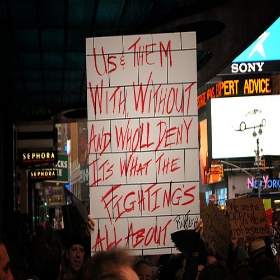 US & THEM
WITH WITHOUT
AND WHO'LL DENY
IT'S WHAT THE
FIGHTING'S
ALL ABOUT
SONY
EXPERT ADVICE
SEPHORA
SEPHORA
NEW YORK